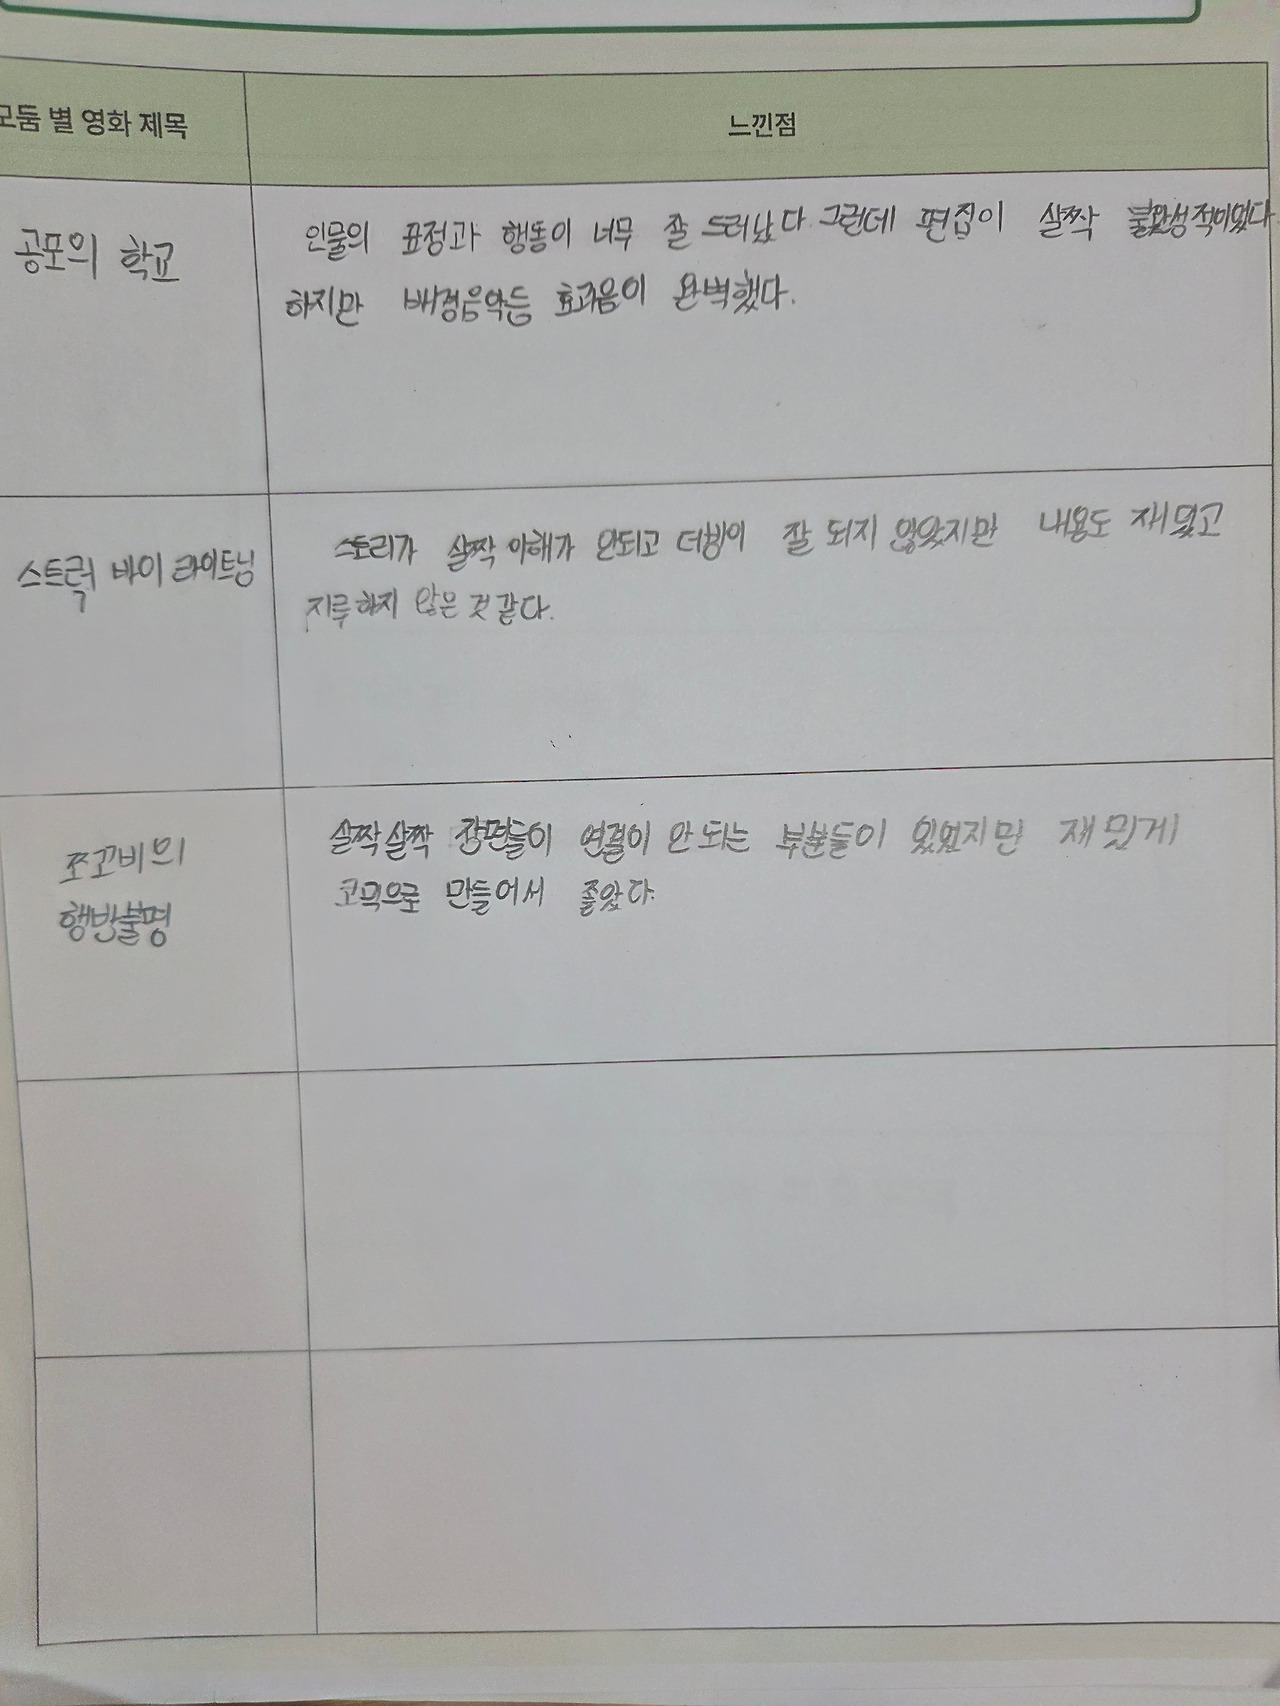 모둠 별 영화 제목
느낀점
공포의 학교
인물의 표정과 행동이 너무 잘 드러났다. 그런데 편집이 살짝 불완성적이었다
하지만 배경음악등 효과음이 완벽했다.
스트럭 바이 라이트닝
스토리가 살짝 이해가 안되고 더빙이 잘 되지 않았지만 내용도 재밌고
지루하지 않은 것 같다.
쪼꼬비의
행방불명
살짝살짝 장면들이 연결이 안 되는 부분들이 있었지만 재밌게
코믹으로 만들어서 좋았다.